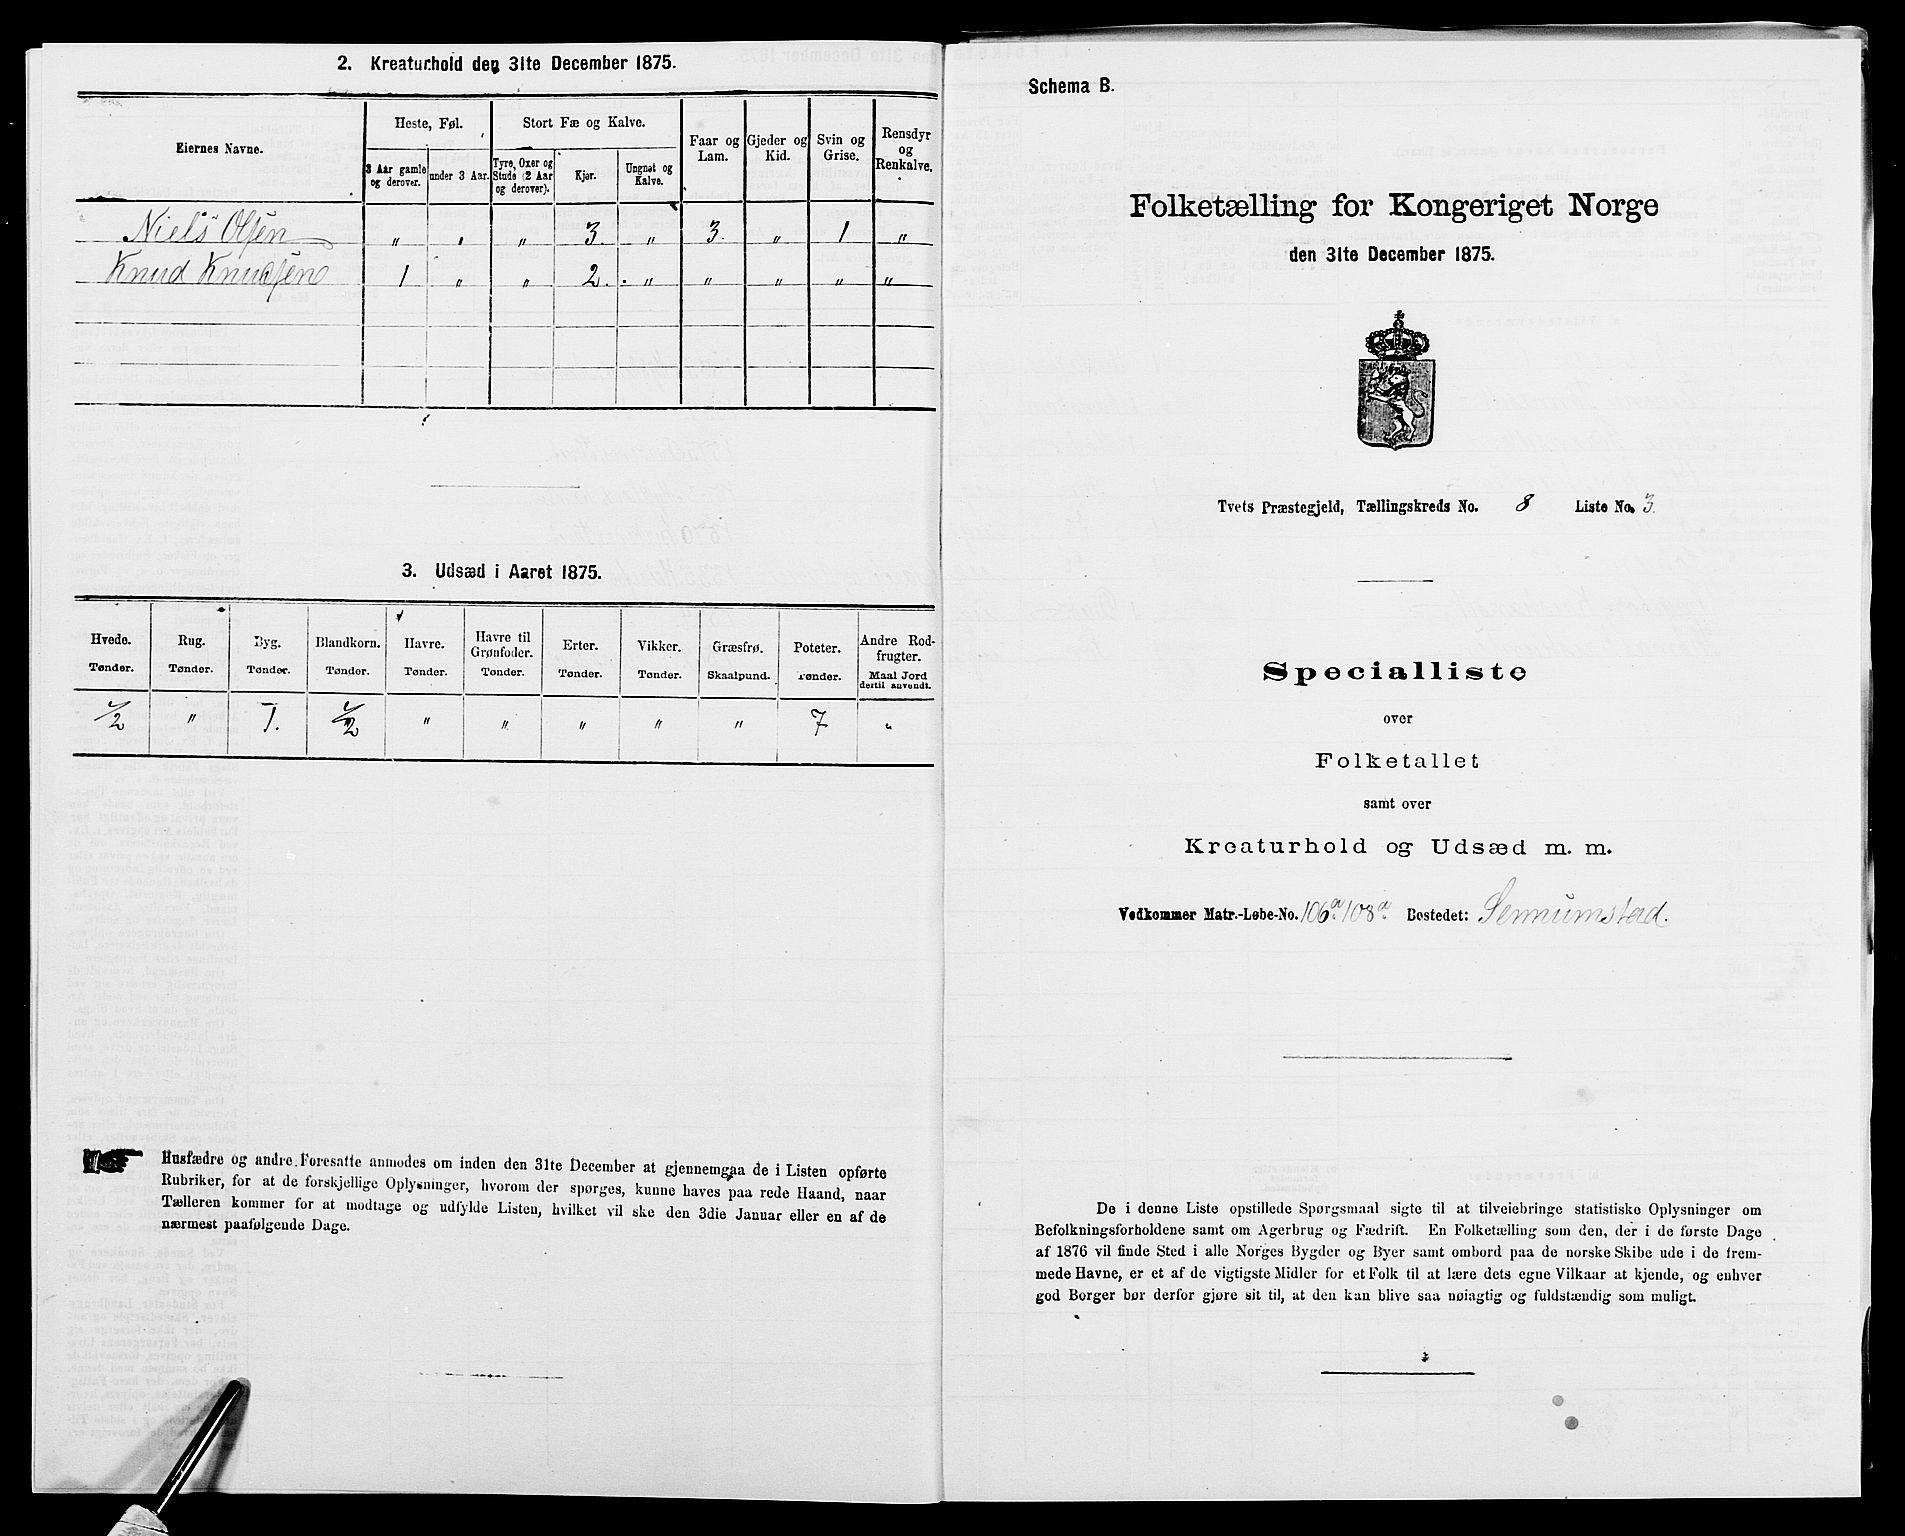 2. Kreaturhold den 31te December 1875.
Eiernes Navne.
Heste, Føl.
3 Aar gamle og derover.
under 3 Aar.
Stort Fæ og Kalve.
Tyre, Oxer og Stude (2 Aar og derover).
Kjør.
Ungnøt og Kalve.
Faar og Lam.
Gjeder og Kid.
Svin og Grise.
Rensdyr og Renkalve.
Niels Olsen " " " 3. " 3. " 1 "
Knud Knudsen 1 " " 2. " " " " "
3. Udsæd i Aaret 1875.
Hvede. Rug. Byg. Blandkorn. Havre. Havre til Grønfoder. Erter. Vikker. Græsfrø. Poteter. Andre Rodfrugter.
Tønder. Tønder. Tønder. Tønder. Tønder. Tønder. Tønder. Tønder. Skaalpund. Tønder. Maal Jord dertil anvendt.
1/2 " 1. 1/2 " " " " " 7 "
Husfædre og andre Foresatte anmodes om inden den 31te December at gjennemgaa de i Listen opførte
Rubriker, for at de forskjellige Oplysninger, hvorom der spørges, kunne haves paa rede Haand, naar
Tælleren kommer for at modtage og udfylde Listen, hvilket vil ske den 3die Januar eller en af de
nærmest paafølgende Dage.
Schema B.
Folketælling for Kongeriget Norge
den 31te December 1875.
Tvets Præstegjeld, Tællingskreds No. 8 Liste No. 3.
Specialliste
over
Folketallet
samt over
Kreaturhold og Udsæd m. m.
Vedkommer Matr.-Løbe-No. 106a. 108a. Bostedet: Sennumstad.
De i denne Liste opstillede Spørgsmaal sigte til at tilveiebringe statistiske Oplysninger om
Befolkningsforholdene samt om Agerbrug og Fædrift. En Folketælling som den, der i de første Dage
af 1876 vil finde Sted i alle Norges Bygder og Byer samt ombord paa de norske Skibe ude i de frem-
mede Havne, er et af de vigtigste Midler for et Folk til at lære dets egne Vilkaar at kjende, og enhver
god Borger bør derfor gjøre sit til, at den kan blive saa nøiagtig og fuldstændig som muligt.